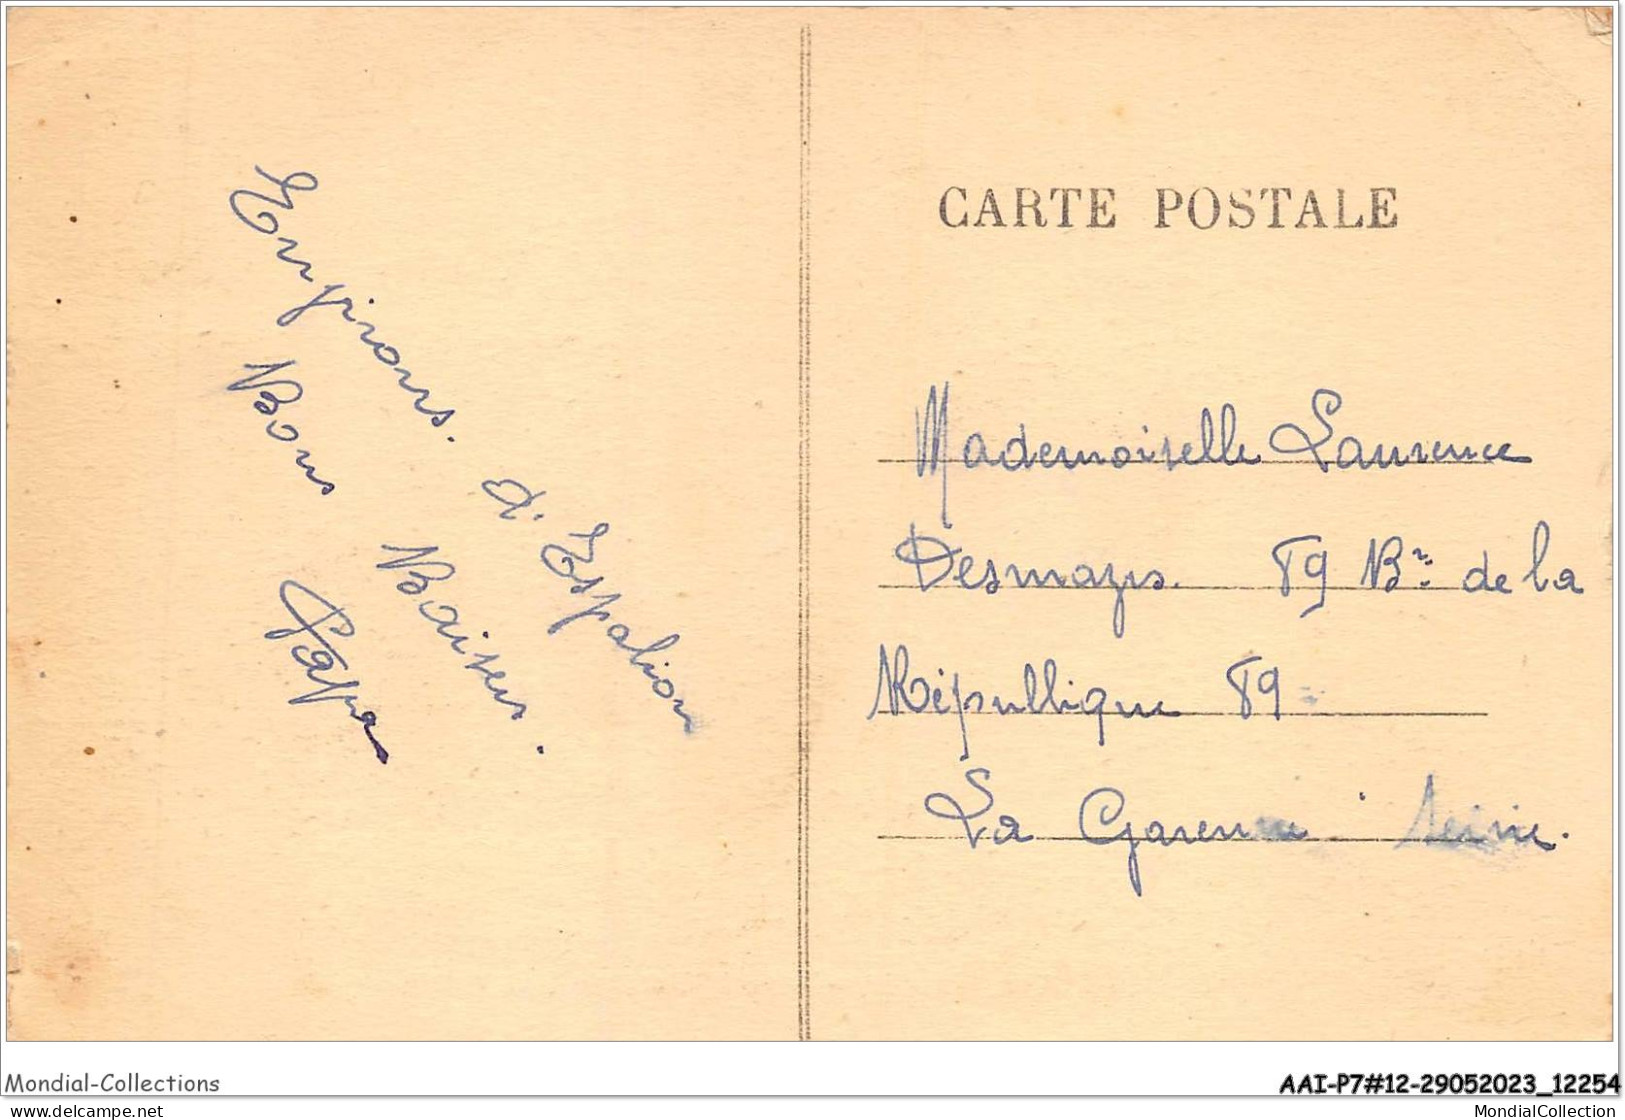 Environs. d'Espalion
Bons Baisers.
Papa
CARTE POSTALE
Mademoiselle Laurence
Desmazes. 89 Bd de la
République 89
La Garenne Seine.
Mondial-Collections
AAI-P7#12-29052023_12254
www.delcampe.net
MondialCollection